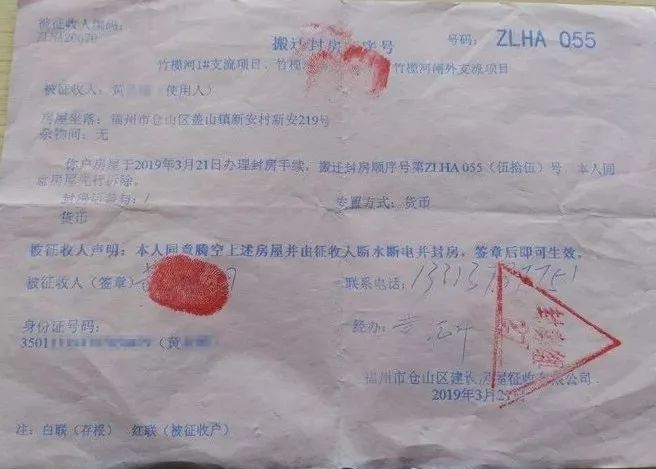 被征收人编码:
ZLHA20670
搬迁封房 序号
号码: ZLHA 055
竹榄河1#支流项目、竹榄 竹榄河闸外支流项目
被征收人: 黄 (使用人)
房屋坐落: 福州市仓山区盖山镇新安村新安219号
杂物间: 无
你户房屋于2019年3月21日办理封房手续, 搬迁封房顺序号第ZLHA 055 (伍拾伍) 号, 本人同
意房屋先行拆除。
/
安置方式: 货币
货币
被征收人声明: 本人同意腾空上述房屋并由征收人断水断电并封房, 签章后即可生效。
被征收人 (签章)
联系电话:
身份证号码:
经办:
3501 (黄
封房组
福州市仓山区建 屋征收有限公司
2019年3月2
注: 白联 (存根) 红联 (被征收户)